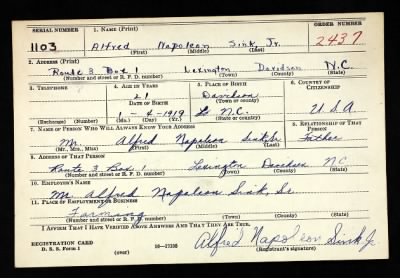 SERIAL NUMBER 1. NAME (Print) ORDER NUMBER
1103 Alfred Napoleon Sink Jr. 2437
(First) (Middle) (Last)
2. ADDRESS (Print)
Route 3 Box 1 Lexington Davidson N.C.
(Number and street or R. F. D. number) (Town) (County) (State)
3. TELEPHONE 4. AGE IN YEARS 5. PLACE OF BIRTH 6. COUNTRY OF CITIZENSHIP
21 Davidson
DATE OF BIRTH (Town or county)
-4-1919 N.C. U.S.A
(Exchange) (Number) (Mo.) (Day) (Yr.) (State or country)
7. NAME OF PERSON WHO WILL ALWAYS KNOW YOUR ADDRESS 8. RELATIONSHIP OF THAT PERSON
Mr. Alfred Napoleon Sink Sr. Father
(Mr., Mrs., Miss) (First) (Middle) (Last)
9. ADDRESS OF THAT PERSON
Route 3 Box 1 Lexington Davidson N.C.
(Number and street or R. F. D. number) (Town) (County) (State)
10. EMPLOYER'S NAME
Mr. Alfred Napoleon Sink Sr.
11. PLACE OF EMPLOYMENT OR BUSINESS
Farming
(Number and street or R. F. D. number) (Town) (County) (State)
I AFFIRM THAT I HAVE VERIFIED ABOVE ANSWERS AND THAT THEY ARE TRUE.
REGISTRATION CARD
D. S. S. Form 1 (over) 16—17105 Alfred Napoleon Sink Jr.
(Registrant's signature)